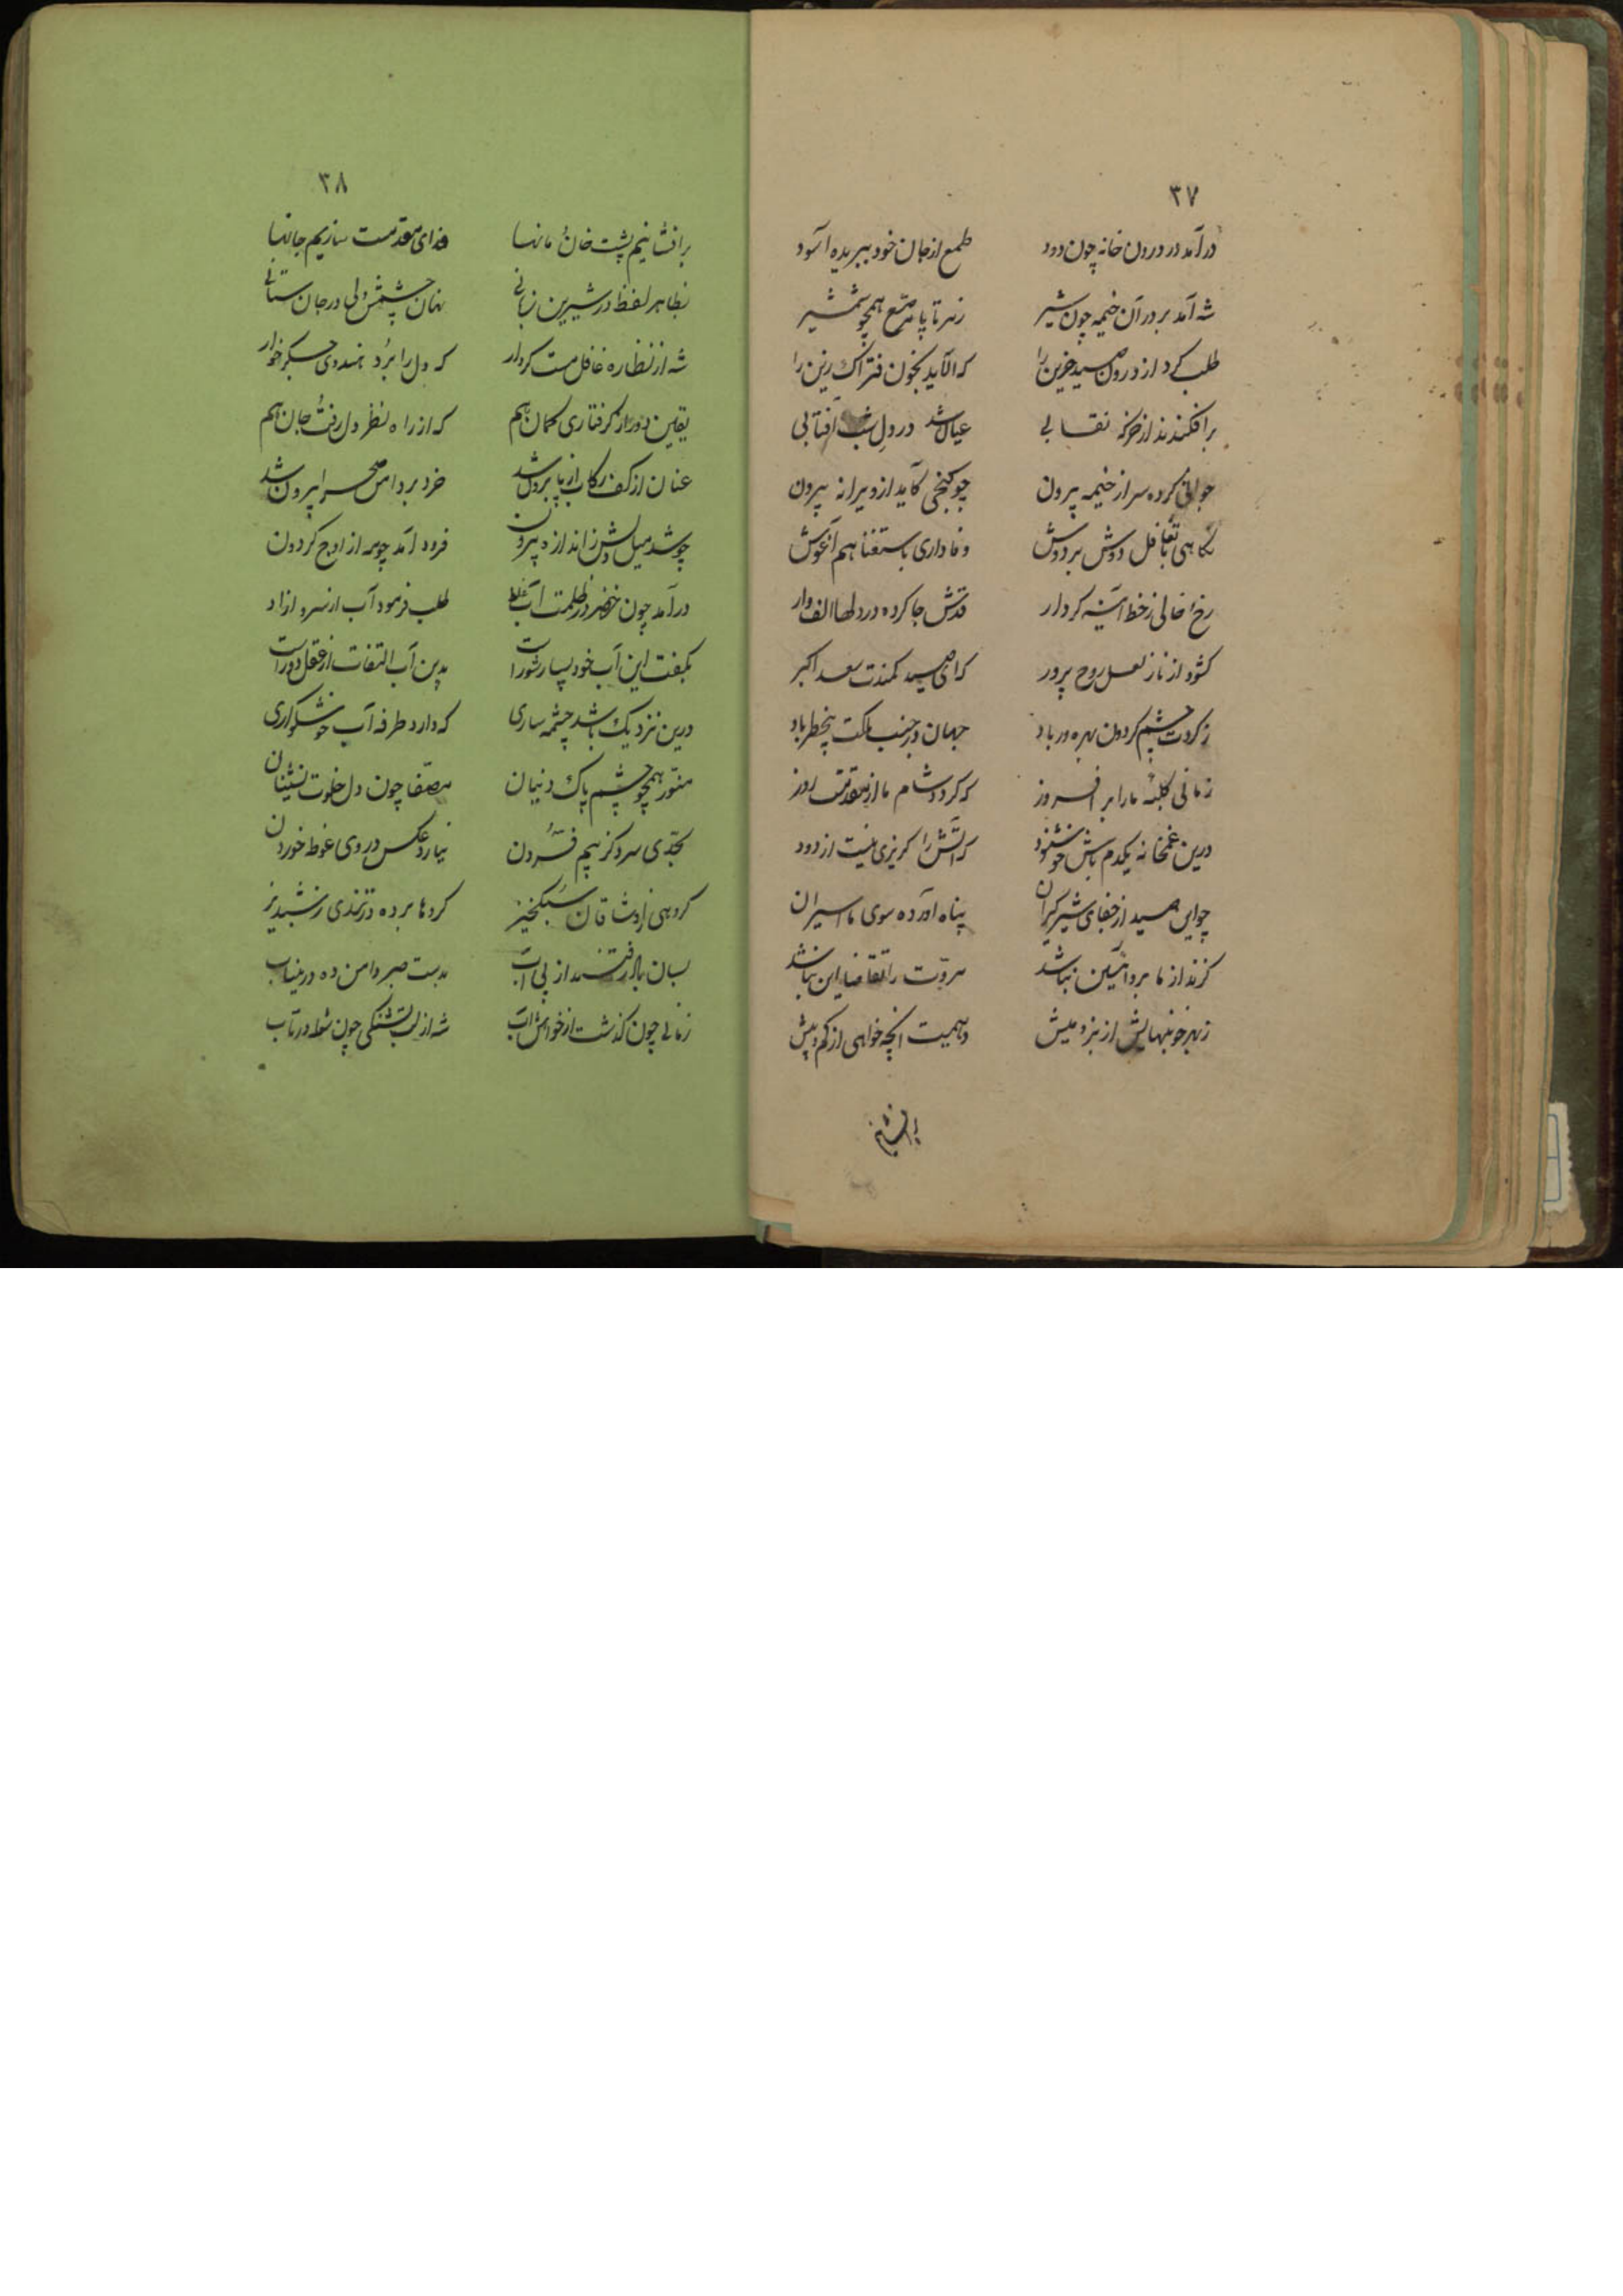 ۳۷
درآمد در درون خانه چون دود طمع از جان خود ببریده آسود
شه آمد بر در آن خیمه چون شیر ز سر تا پا مرصّع همچو شمشیر
طلب کرد از درون صید حزین را که آلاید بخون فتراک زین را
برافکندند از خرگه نقابی عیان شد در دل شب آفتابی
جوانی کرده سر از خیمه بیرون چو گنجی کاید از ویرانه بیرون
نگاهی با تغافل دوش بر دوش وفاداری باستغنا هم آغوش
رخ خالی ز خط آیینه کردار قدش جا کرده در دلها الف وار
کشود از ناز لعل روح پرور که ای صید کمندت سعد اکبر
ز گردت چشم گردون بهره ور باد جهان در جنب ملکت باد
زمانی کلبهٔ ما را بر افروز که گردد شام ما از مقدمت روز
درین غمخانه یکدم باش خوشنود که آتش را گریزی نیست از دود
چو این صید از جفای شیر گیران پناه آورده سوی ما اسیران
گزند از ما بر او آیین نباشد مروّت را تقاضا این نباشد
ز بهر خونبهایش از بز و میش دهیمت آنچه خواهی از کم و بیش
برافشانیم
۳۸
برافشانیم پشت خان و مانها فدای مقدمت سازیم جانها
بظاهر لفظ در شیرین زبانی نهان چشمش ولی در جان ستانی
شه از نظاره غافل مست کردار که دل را برد هندوی جگر خوار
یقین دور از گرفتاری گمان هم که از راه نظر دل رفت و جان هم
عنان از کف رکاب از پا برون شد خرد بر دامن صحرا برون شد
چو شد میل دلش ز اندازه بیرون فرود آمد چو مه از اوج گردون
درآمد چون خضر در ظلمت آباد طلب فرمود آب از سرو آزاد
بگفت این آب خود بسیار شور است بدین آب التفات از عقل دور است
درین نزدیک باشد چشمه ساری که دارد طرفه آب خوشگواری
منوّر همچو چشم پاک دینان مصفّا چون دل خلوت نشینان
بحدّی سرد کز بیم فسردن نیارد عکس در وی غوطه خوردن
گروهی از وشاقان سبکخیز گروها برده در تندی ز شبدیز
بسان باد رفتند از پی آب بدست صبر دامن ده درین باب
زمانی چون گذشت از خواهش آب شه از لب تشنگی چون شعله در تاب